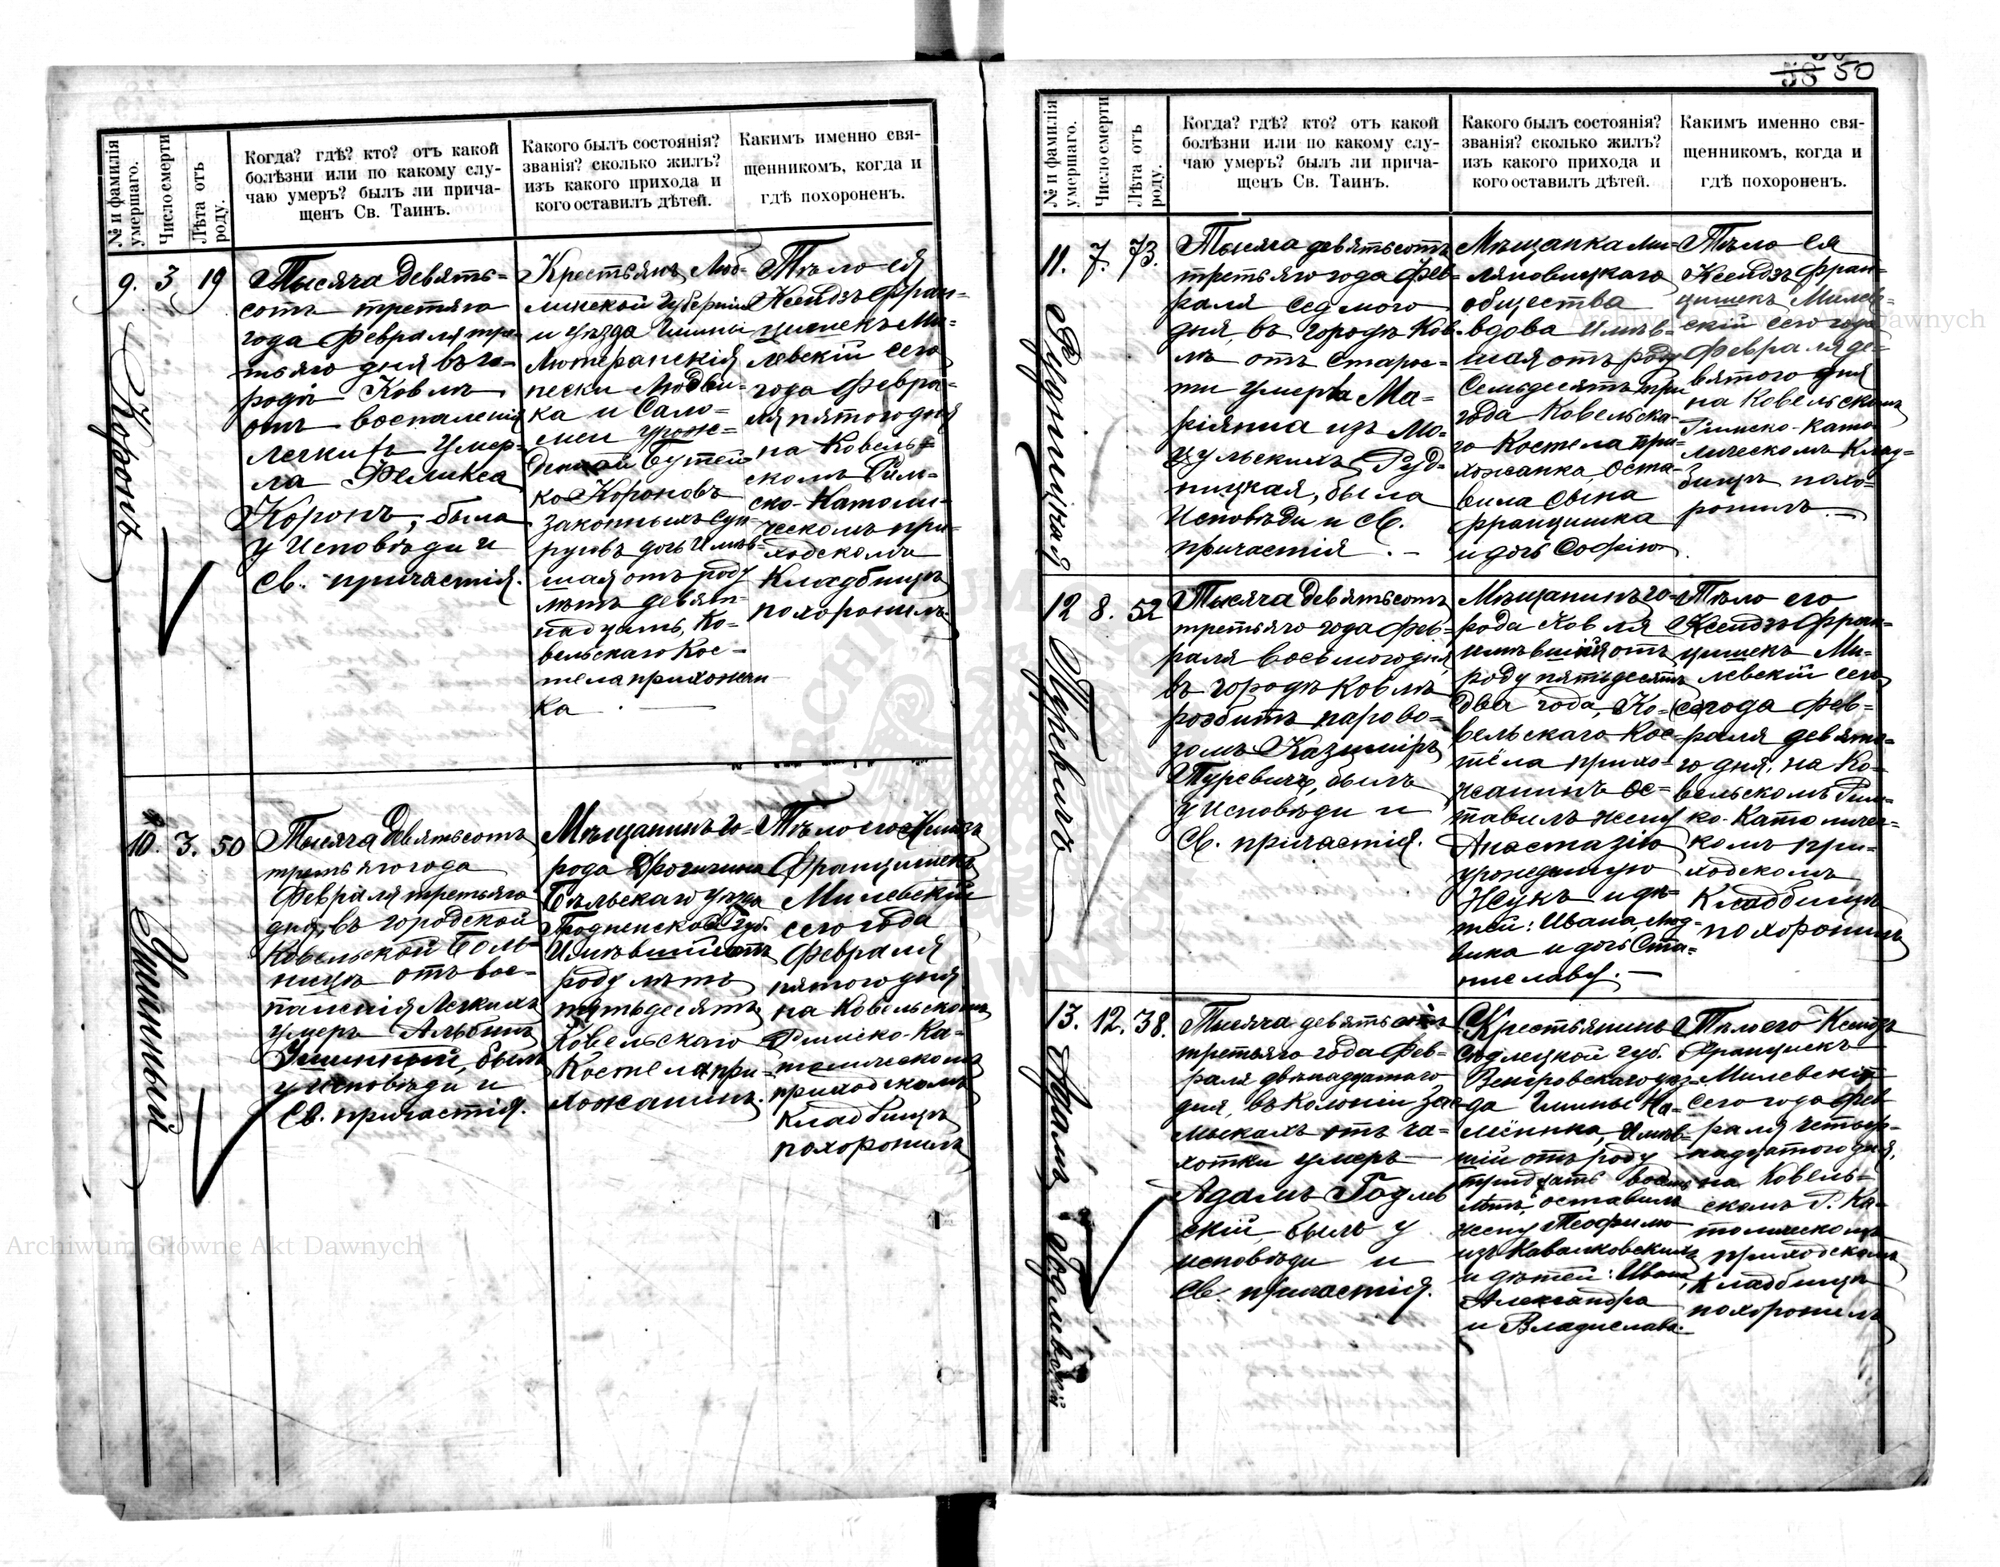 № и фамилія умершаго.
Число смерти
Лѣта отъ роду.
Когда? гдѣ? кто? отъ какой
болѣзни или по какому слу-
чаю умеръ? былъ ли прича-
щенъ Св. Таинъ.
Какого былъ состоянія?
званія? сколько жилъ?
изъ какого прихода и
кого оставилъ дѣтей.
Какимъ именно свя-
щенникомъ, когда и
гдѣ похороненъ.
9. 3 19
Коронъ
Тысяча девять-
сотъ третяго
года Февраля тре-
тьяго дня въ го-
родѣ Ковлѣ
отъ воспаленія
легкихъ умер-
ла Феликса
Коронъ, была
у Исповѣди и
Св. причастія.
Крестьянъ Люб-
линской Губерніи
и уѣзда Гмины
Люторанскія
пески Людви-
ка и Сало-
меи урож-
денной Бутей-
ко Короновъ
законныхъ суп-
руговъ дочь Имѣв-
шая отъ роду
лѣтъ девят-
надцать, Ко-
вельскаго Кос-
тела прихожан-
ка.
Тѣло ея
Ксендзъ Фран-
цишекъ Ми-
левскій сего
года Февра-
ля пятого дня
на Ковель-
скомъ Рим-
ско-Католи-
ческомъ при-
ходскомъ
Кладбищѣ
похоронилъ
10. 3. 50
Ушинскій
Тысяча девятьсотъ
третьяго года
Февраля третьяго
дня, въ городской
Ковельской Боль-
ницѣ отъ вос-
паленія Легкихъ
умеръ Альбинъ
былъ
у Исповѣди и
Св. причастія.
Мѣщанинъ го-
рода Дрогичина
Бѣльскаго уѣзда
Гродненской Губ.
Имѣвшій отъ
роду лѣтъ
пятьдесятъ
Ковельскаго
Костела при-
хожанинъ.
Тѣло его Ксендзъ
Францишекъ
Милевскій
сего года
Февраля
пятого дня
на Ковельскомъ
Римско-Ка-
толическомъ
приходскомъ
Кладбищѣ
похоронилъ
58 50
№ и фамилія умершаго.
Число смерти
Лѣта отъ роду.
Когда? гдѣ? кто? отъ какой
болѣзни или по какому слу-
чаю умеръ? былъ ли прича-
щенъ Св. Таинъ.
Какого былъ состоянія?
званія? сколько жилъ?
изъ какого прихода и
кого оставилъ дѣтей.
Какимъ именно свя-
щенникомъ, когда и
гдѣ похороненъ.
11. 7. 73.
Рудницкая
Тысяча девятьсотъ
третьяго года Фев-
раля седмого
дня, въ городѣ Ков-
лѣ отъ старос-
ти умерла Ма-
ріянна изъ Мо-
цульскихъ Руд-
ницкая, была
Исповѣди и Св.
причастія.
Мѣщанка Ми-
ляновицкаго
общества
вдова Имѣв-
шая отъ роду
Семьдесятъ три
года Ковельска-
го Костела при-
хожанка, оста-
вила сына
Францишка
и дочь Софію.
Тѣло ея
Ксендзъ Фран-
цишекъ Милев-
скій сего года
Февраля де-
вятого дня
на Ковельскомъ
Римско-Като-
лическомъ Клад-
бищѣ похо-
ронилъ.
12 8. 52
Туревичъ
Тысяча девятьсотъ
третьяго года Фев-
раля восьмого дня
въ городѣ Ковлѣ
розбитъ парово-
зомъ Казимиръ
Туревичъ, былъ
у Исповѣди и
Св. причастія.
Мѣщанинъ го-
рода Ковля
имѣвшій отъ
роду пятьдесятъ
два года, Ко-
вельскаго Кос-
тела прихо-
жанинъ ос-
тавилъ жену
Анастазію
урожденную
Жукъ и дѣ-
тей: Ивана, Люд-
вика и дочь Ста-
ниславу.
Тѣло его
Ксендзъ Фран-
цишекъ Ми-
левскій сего
года Фев-
раля девято-
го дня, на Ко-
вельскомъ Рим-
ко-Католичес-
комъ при-
ходскомъ
Кладбищѣ
похоронилъ
13. 12. 38.
Адамъ Годлевскій
Тысяча девятьсотъ
третьяго года Фев-
раля двѣнадцатого
дня, въ Колоніи За-
мыкахъ отъ ча-
хотки умеръ
Адамъ Годлев
скій былъ у
исповѣди и
Св. причастія.
Крестьянинъ
Сѣдлецкой губ.
Венгровскаго уѣз-
да Гмины Ка-
мёнка, Имѣв-
шій отъ роду
тридцать восемь
лѣтъ, оставилъ
жену Теофилю
изъ Кавалковскихъ
и дѣтей: Ивана,
Александра
и Владислава.
Тѣло его Ксендзъ
Францискъ
Милевскій
сего года Фев
раля четыр-
надцатого дня,
на Ковель-
скомъ Р. Ка-
толическомъ
приходскомъ
Кладбищѣ
похоронилъ
Archiwum Główne Akt Dawnych
Archiwum Główne Akt Dawnych